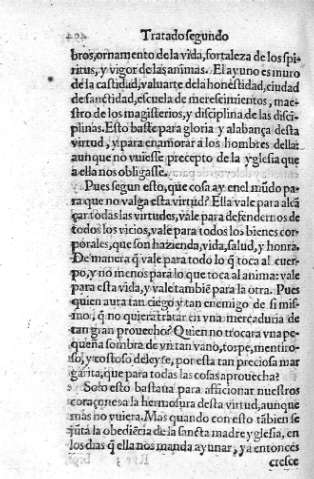 Tratado segundo
bros, ornamento de la vida, fortaleza de los spi-
ritus, y vigor de las animas. El ayuno es muro
de la castidad, valuarte de la honestidad, ciudad
de sanctidad, escuela de merescimientos, mae-
stro de los magisterios, y disciplina de las disci-
plinas. Esto baste para gloria y alabança desta
virtud, y para enamorar a los hombres della:
aunque no vuiesse precepto de la yglesia que
a ella nos obligasse.
Pues segun esto, que cosa ay en el mũdo pa-
ra que no valga esta virtud? Ella vale para alcã
çar todas las virtudes, vale para defendernos de
todos los vicios, vale para todos los bienes cor-
porales, que son hazienda, vida, salud, y honra.
De manera q̃ vale para todo lo q̃ toca al cuer-
po, y no menos para lo que toca al anima: vale
para esta vida, y vale tambiẽ para la otra. Pues
quien aura tan ciego y tan enemigo de si mis-
mo, q̃ no quiera tratar en vna mercaduria de
tan gran prouecho? Quien no trocara vna pe-
queña sombra de vn tan vano, torpe, mentiro-
so, y costoso deleyte, por esta tan preciosa mar
garita, que para todas las cosas aprouecha?
Solo esto bastaua para afficionar nuestros
coraçones a la hermosura desta virtud, aunque
mas no vuiera. Mas quando con esto tãbien se
jũta la obediẽcia de la sancta madre yglesia, en
los dias q̃ ella nos manda ayunar, ya entonces
cresce